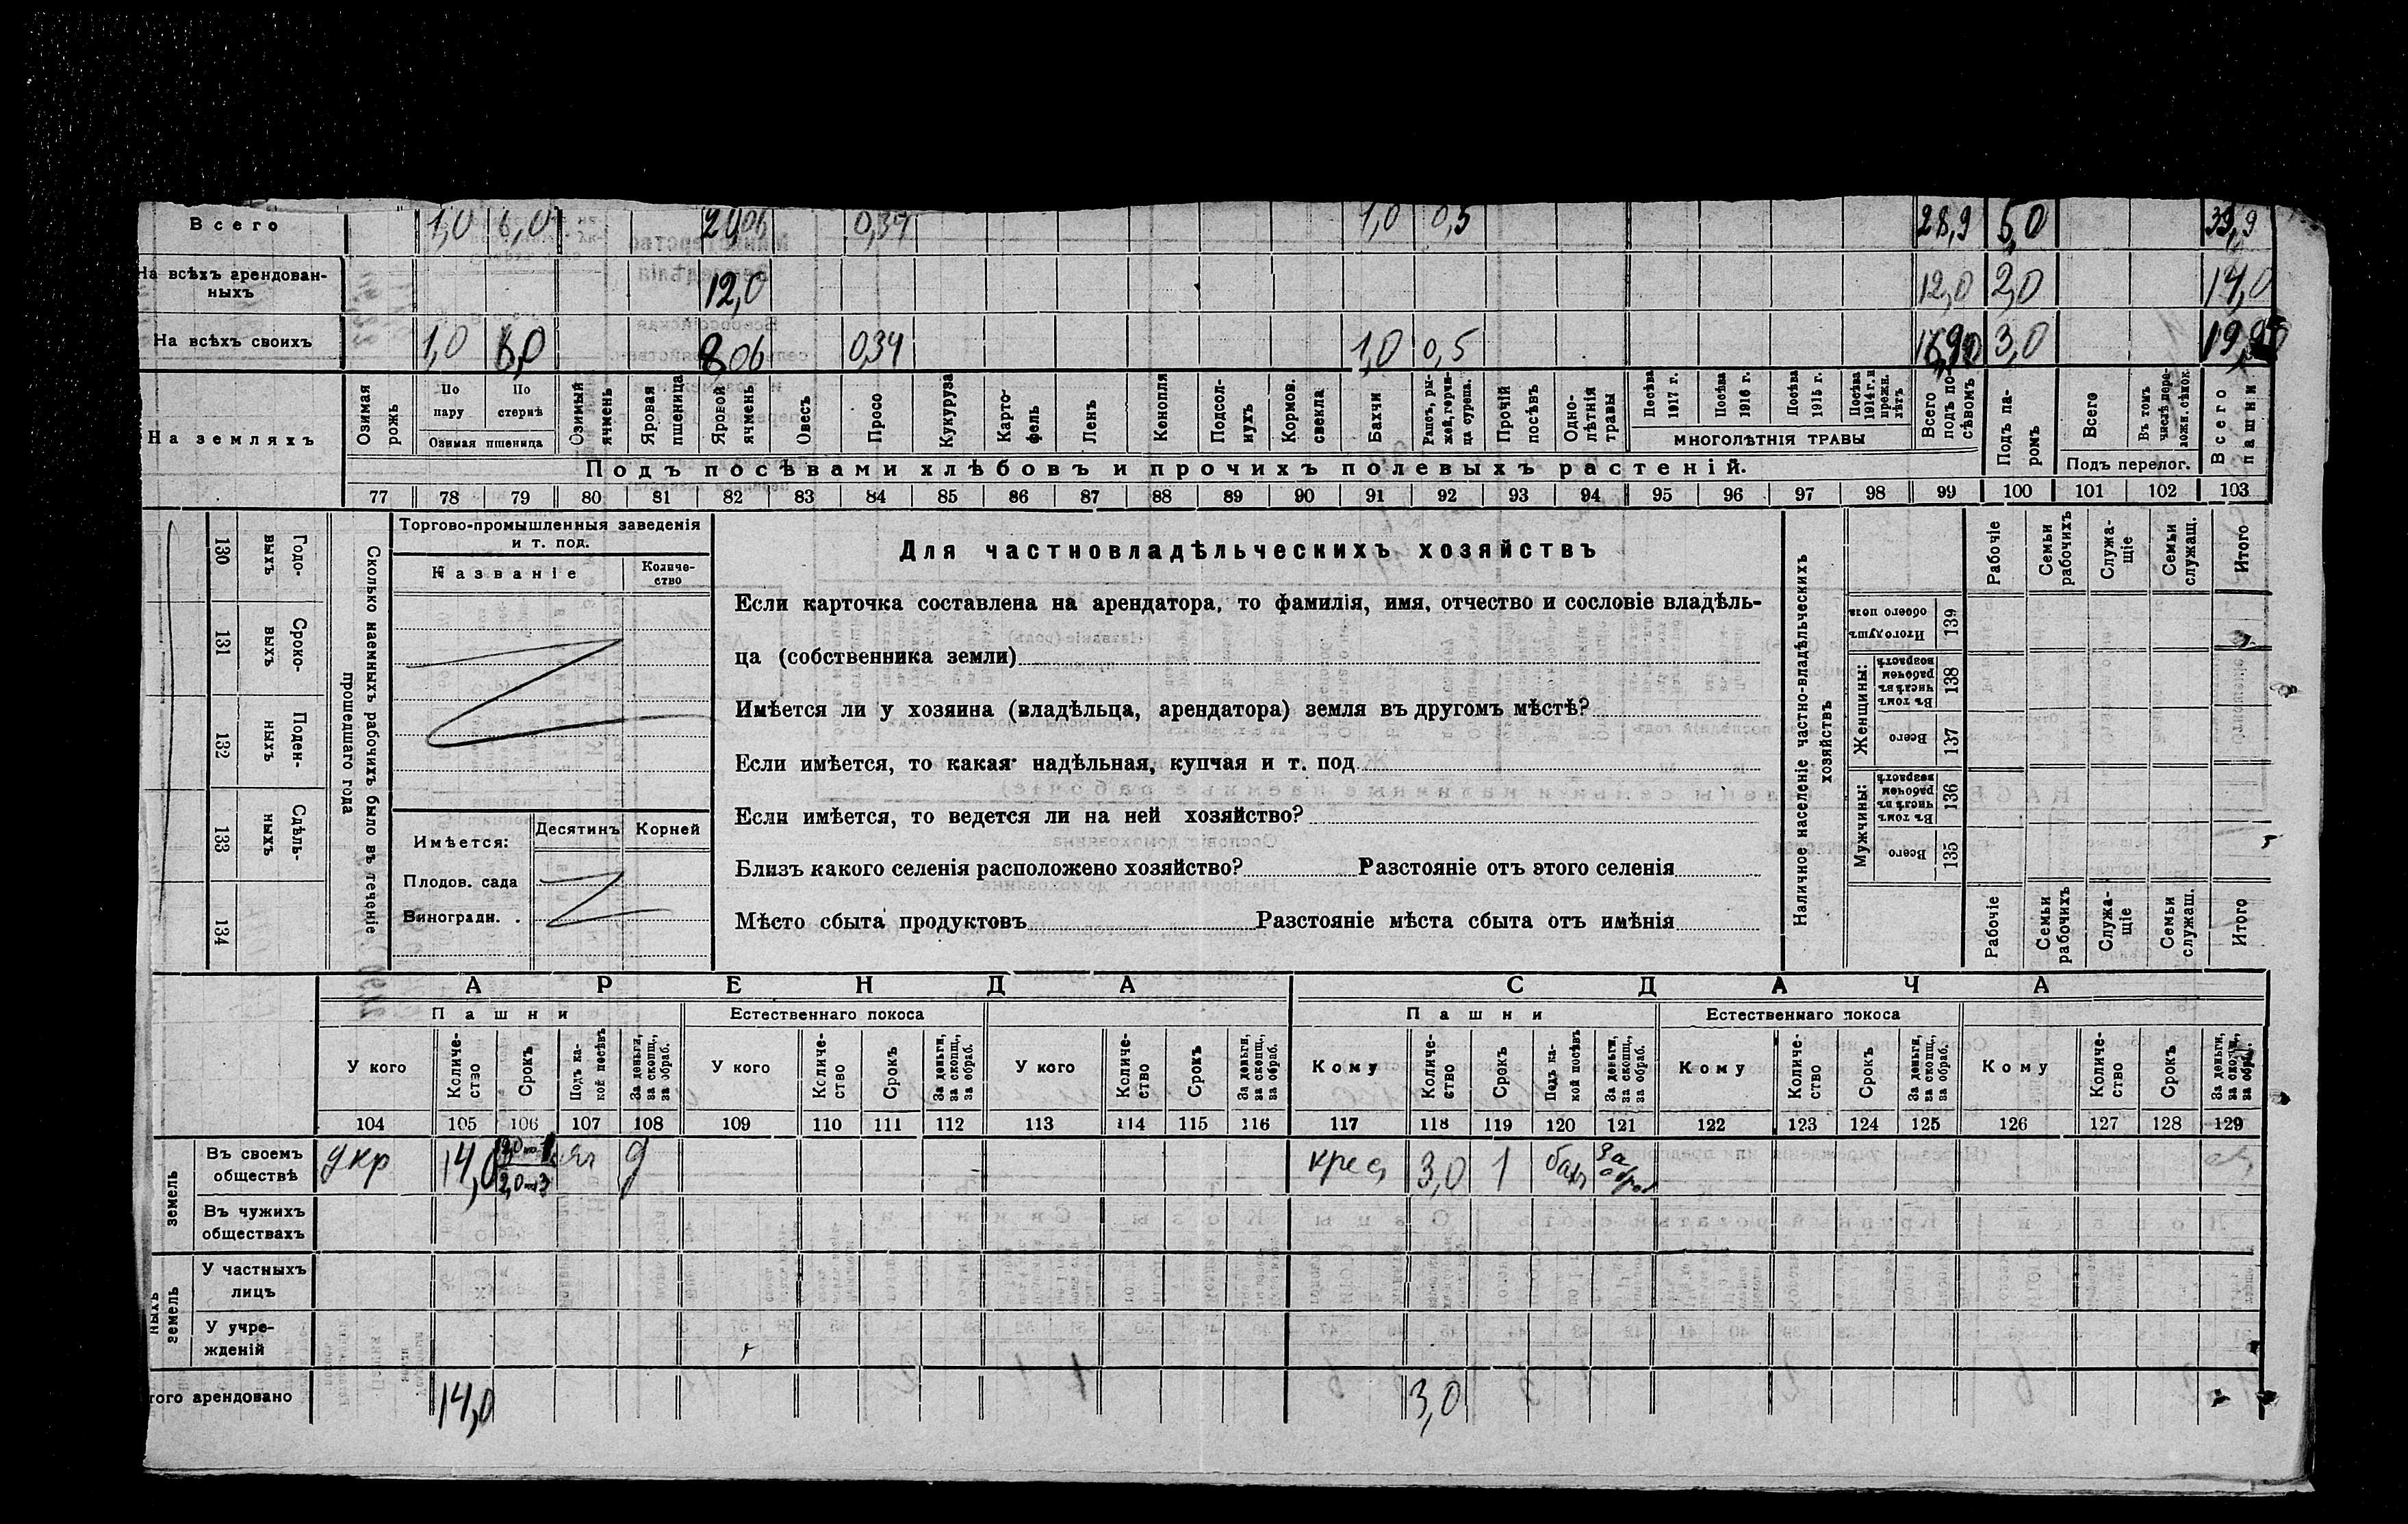 Всего 1,0 6,0 20,06 0,34 1,0 0,5 28,9 5,0 33,9
На всѣхъ арендован-
ныхъ 12,0 12,0 2,0 14,0
На всѣхъ своихъ 1,0 6,0 8,06 0,34 1,0 0,5 16,90 3,0 19,90
На земляхъ
Озимая рожь
По пару
По стернѣ
Озимая пшеница
Озимый ячмень
Яровая пшеница
Яровой ячмень
Овесъ
Просо
Кукуруза
Карто-
фель
Ленъ
Конопля
Подсол-
нухъ
Кормов.
свекла
Бахчи
Рапсъ, ры-
жей, горчи-
ца сурепа.
Прочій посѣвъ
Одно-
лѣтнія
травы
Посѣва 1917 г.
Посѣва 1916 г.
Посѣва 1915 г.
Посѣва 1914 г. и прежн. лѣтъ
МНОГОЛѢТНІЯ ТРАВЫ
Всего подъ по-
сѣвомъ
Подъ па-
ромъ
Всего
Въ томъ числѣ пере-
лож. сѣнок.
Подъ перелог.
Всего пашни
Подъ посѣвами хлѣбовъ и прочихъ полевыхъ растеній.
77 78 79 80 81 82 83 84 85 86 87 88 89 90 91 92 93 94 95 96 97 98 99 100 101 102 103
130 Годо-
выхъ
131 Сроко-
выхъ
132 Поден-
ныхъ
133 Сдѣль-
ныхъ
134
Сколько наемныхъ рабочихъ было въ теченіе
прошедшаго года
Торгово-промышленныя заведенія
и т. под.
Названіе
Количе-
ство
Имѣется:
Десятинъ Корней
Плодов. сада
Виноградн. .
Для частновладѣльческихъ хозяйствъ
Если карточка составлена на арендатора, то фамилія, имя, отчество и сословіе владѣль-
ца (собственника земли)
Имѣется ли у хозяина (владѣльца, арендатора) земля въ другомъ мѣстѣ?
Если имѣется, то какая: надѣльная, купчая и т. под.
Если имѣется, то ведется ли на ней хозяйство?
Близъ какого селенія расположено хозяйство? Разстояніе отъ этого селенія
Мѣсто сбыта продуктовъ Разстояніе мѣста сбыта отъ имѣнія
Наличное населеніе частно-владѣльческихъ
хозяйствъ
Рабочіе
Семьи рабочихъ
Служа-
щіе
Семьи служащ.
Итого
Итого душъ обоего пола 139
Женщины:
Въ томъ числѣ въ рабочемъ возрастѣ 138
Всего 137
Мужчины:
Въ томъ числѣ въ рабочемъ возрастѣ 136
Всего 135
Рабочіе
Семьи рабочихъ
Служа-
щіе
Семьи служащ.
Итого
АРЕНДА СДАЧА
Пашни Естественнаго покоса Пашни Естественнаго покоса
У кого
Количе-
ство
Срокъ
Подъ ка-
кой посѣвъ
За деньги,
за скопщ.,
за обраб.
У кого
Количе-
ство
Срокъ
За деньги,
за скопщ.,
за обраб.
У кого
Количе-
ство
Срокъ
За деньги,
за скопщ.,
за обраб.
Кому
Количе-
ство
Срокъ
Подъ ка-
кой посѣвъ
За деньги,
за скопщ.,
за обраб.
Кому
Количе-
ство
Срокъ
За деньги,
за скопщ.,
за обраб.
Кому
Количе-
ство
Срокъ
За деньги,
за скопщ.,
за обраб.
104 105 106 107 108 109 110 111 112 113 114 115 116 117 118 119 120 121 122 123 124 125 126 127 128 129
земель
Въ своемъ
обществѣ у кр 14,0 яч д крес 3,0 1 бахч За обраб
Въ чужихъ
обществахъ
ныхъ земель
У частныхъ
лицъ
У учре-
жденій
того арендовано 14,0 3,0